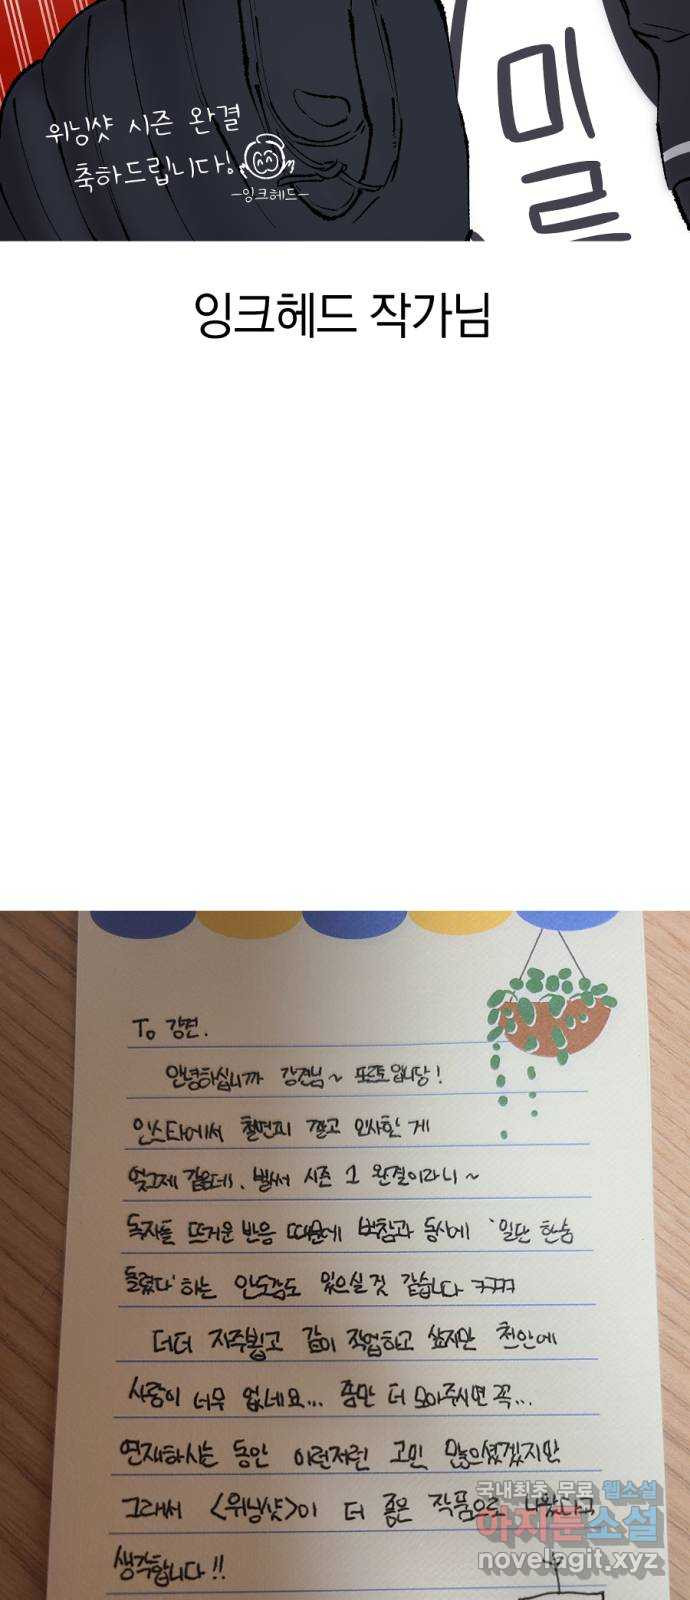 위닝샷 시즌 완결
축하드립니다!
-잉크헤드-
미
르
잉크헤드 작가님
To 강견.
안녕하십니까 강견님~ 포르토입니당!
인스타에서 철면피 깔고 인사한 게
엊그제 같은데, 벌써 시즌 1 완결이라니~
독자들 뜨거운 반응 때문에 벅참과 동시에 '일단 한숨
돌렸다' 하는 안도감도 있으실 것 같습니다 ㅋㅋㅋㅋ
더더 자주 뵙고 같이 작업하고 싶지만 천안에
사람이 너무 없네요... 좀만 더 모아주시면 꼭...
연재하시는 동안 이런저런 고민 많으셨겠지만
그래서 <위닝샷>이 더 좋은 작품으로 나왔다고
생각합니다!!
국내최초 무료 웹소설
아지툰소설
novelagit.xyz